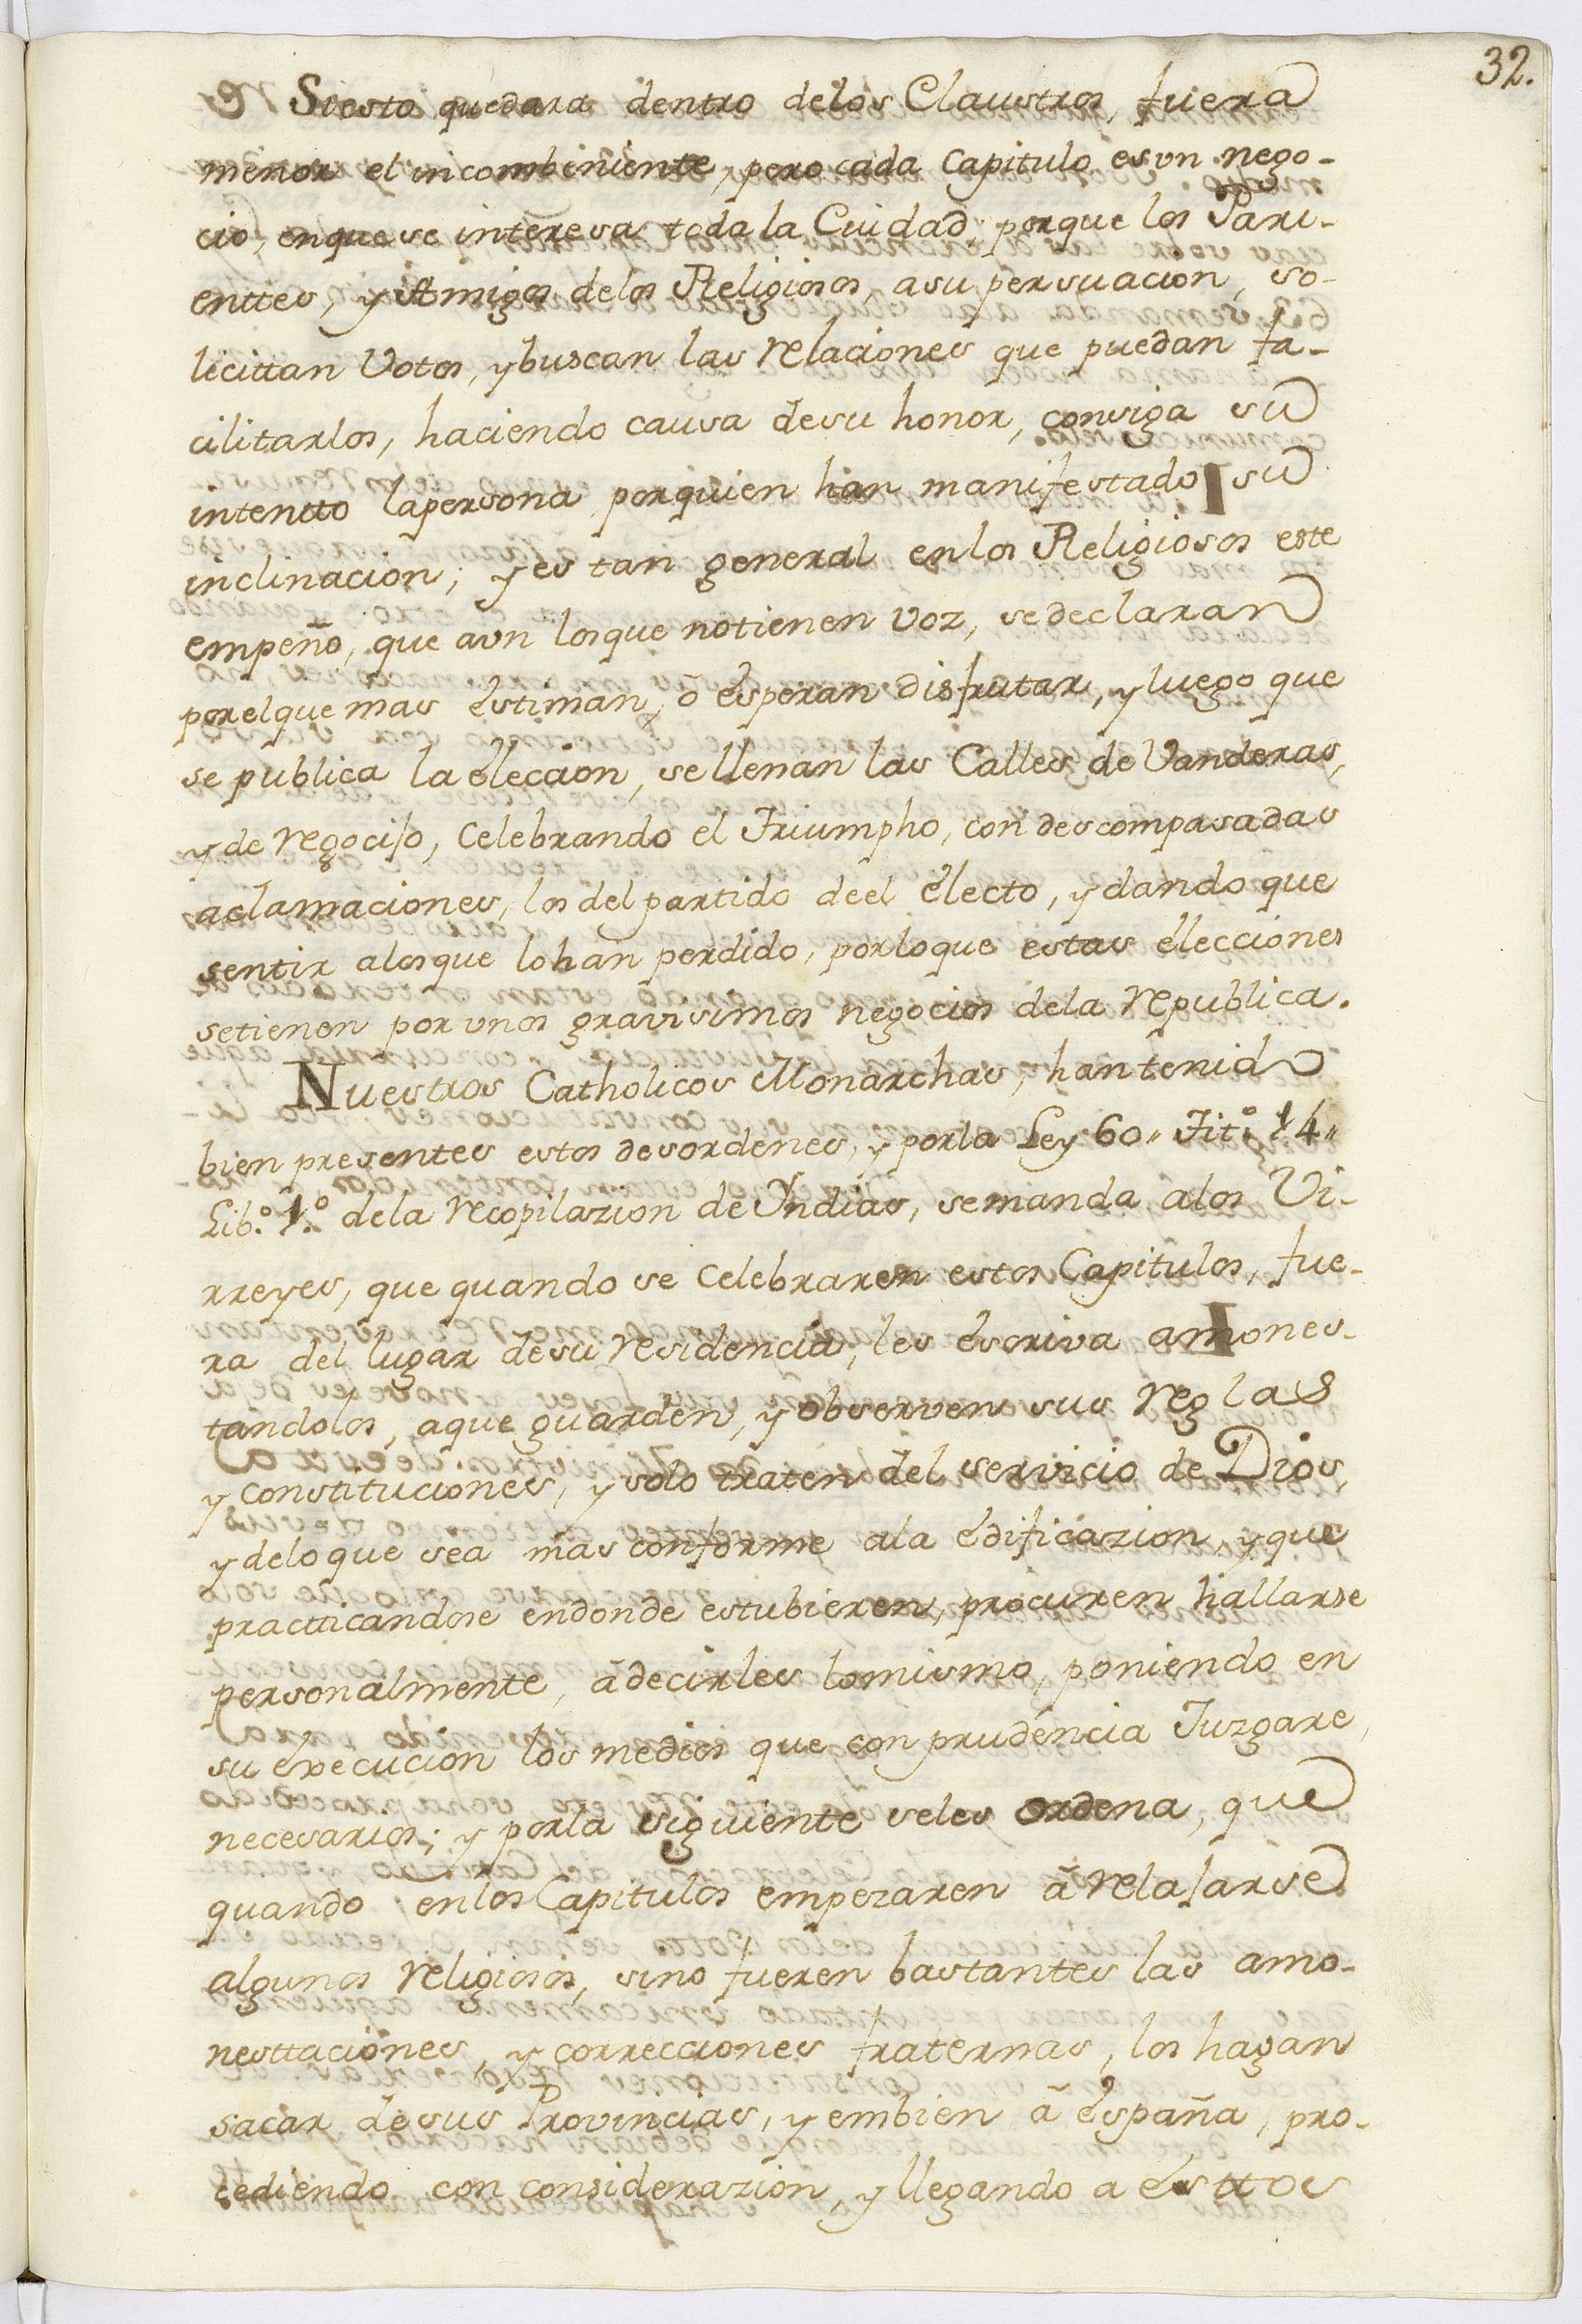 32.
Si esto quedara dentro delos Claustros, fuera
menor el incombeniente, pero cada Capitulo es vn nego-
cio, enque se interesa toda la Ciudad; porque los Pari-
enttes, y Amigos delos Religiosos, a su persuacion, so-
licittan Votos, y buscan las relaciones que puedan fa-
cilitarlos, haciendo causa de su honor, consiga su
intentto la persona por quien han manifestado su
inclinacion; y es tan general en los Religiosos este
empeño, que aun los que no tienen voz, se declaran
por el que mas estiman, ô esperan disfrutar, y luego que
se publica la eleccion, se llenan las Calles de Vanderas,
y de regocijo, Celebrando el Triumpho, con descompasadas
aclamaciones, los del partido de el electo, y dando que
sentir a los que lo han perdido, por lo que estas ellecciones
se tienen por vnos gravisimos negocios dela republica.
Nuestros Catholicos Monarchas, han tenido
bien presentes estos desordenes, y por la Ley 60„ Tit.º 14„
Lib.º 1.º dela recopilazion de Yndias, se manda a los Vi-
rreyes, que quando se Celebraren estos Capitulos, fue-
ra del lugar de su residencia, les escriva amones-
tandolos, a que guarden, y observen sus reglas
y constituciones, y solo traten del servicio de Dios,
y de lo que sea mas conforme a la edificazion, y que
practticandose en donde estubieren, procuren hallarse
personalmente, â decirles lo mismo, poniendo en
su execucion los medios que con prudencia Juzgare,
necesarios; y por la siguiente se les ordena, que
quando en los Capitulos empezaren â relajarse
algunos religiosos, sino fueren bastantes las amo-
nesttaciones, y correcciones fraternas, los hagan
sacar de sus Provincias, y embien â España, pro-
cediendo con considerazion, y llegando a esttos